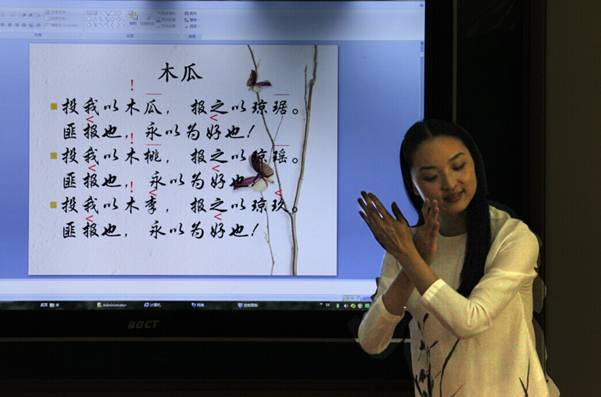 木瓜
投我以木瓜，报之以琼琚。
匪报也，永以为好也！
投我以木桃，报之以琼瑶。
匪报也，永以为好也！
投我以木李，报之以琼玖。
匪报也，永以为好也！
Administrator